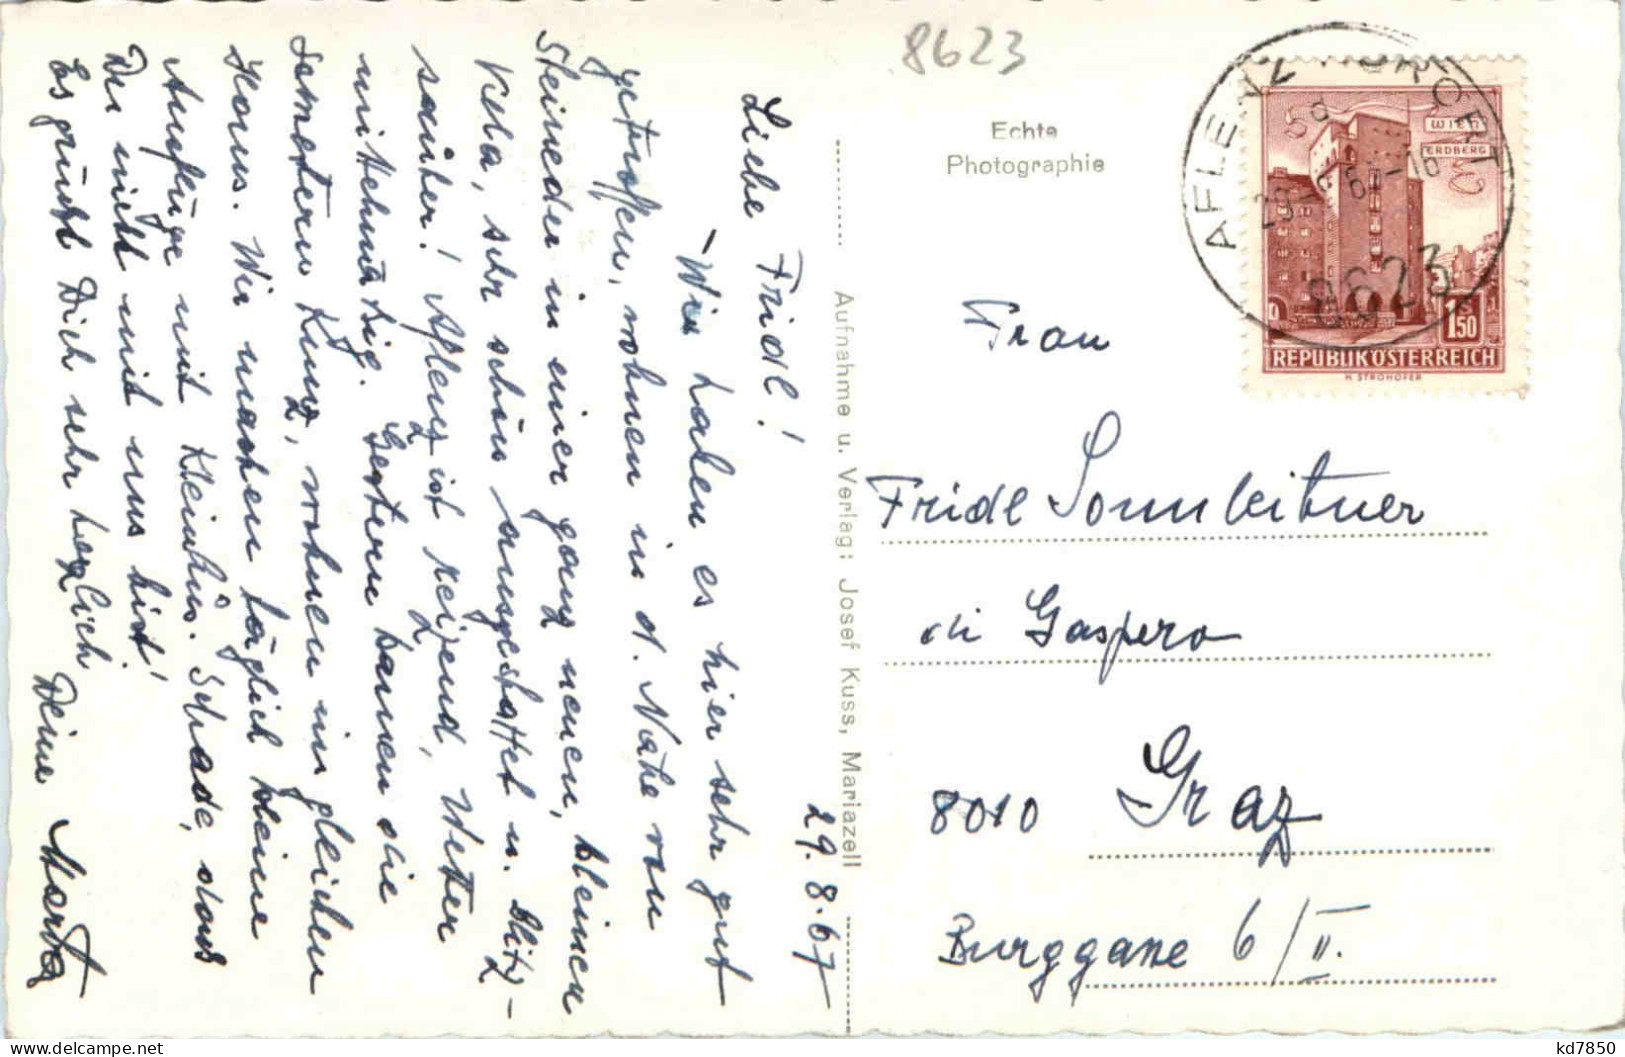 8623
Echte
Photographie
AFLENZ KURORT
8623
WIEN
ERDBERG
1.50
REPUBLIK ÖSTERREICH
H. STROHOFER
29. 8. 67
Liebe Fridl!
– Wir haben es hier sehr gut
getroffen, wohnen in d. Nähe von
Steineder in einer ganz neuen, kleinen
Villa, sehr schön ausgestattet u. blitz-
sauber! Aflenz ist reizend, Wetter
mittelmäßig. Gestern kamen die
Kunz, wohnen im gleichen
Haus. Wir machen täglich kleine
Ausflüge mit Kleinbus. Schade, dass
Du nicht mit uns bist!
Es grüßt Dich sehr herzlich
Deine Marta
Aufnahme u. Verlag: Josef Kuss, Mariazell
Frau
Fridl Sonnleitner
di Gaspero
8010 Graz
Burggasse 6/II.
kd7850